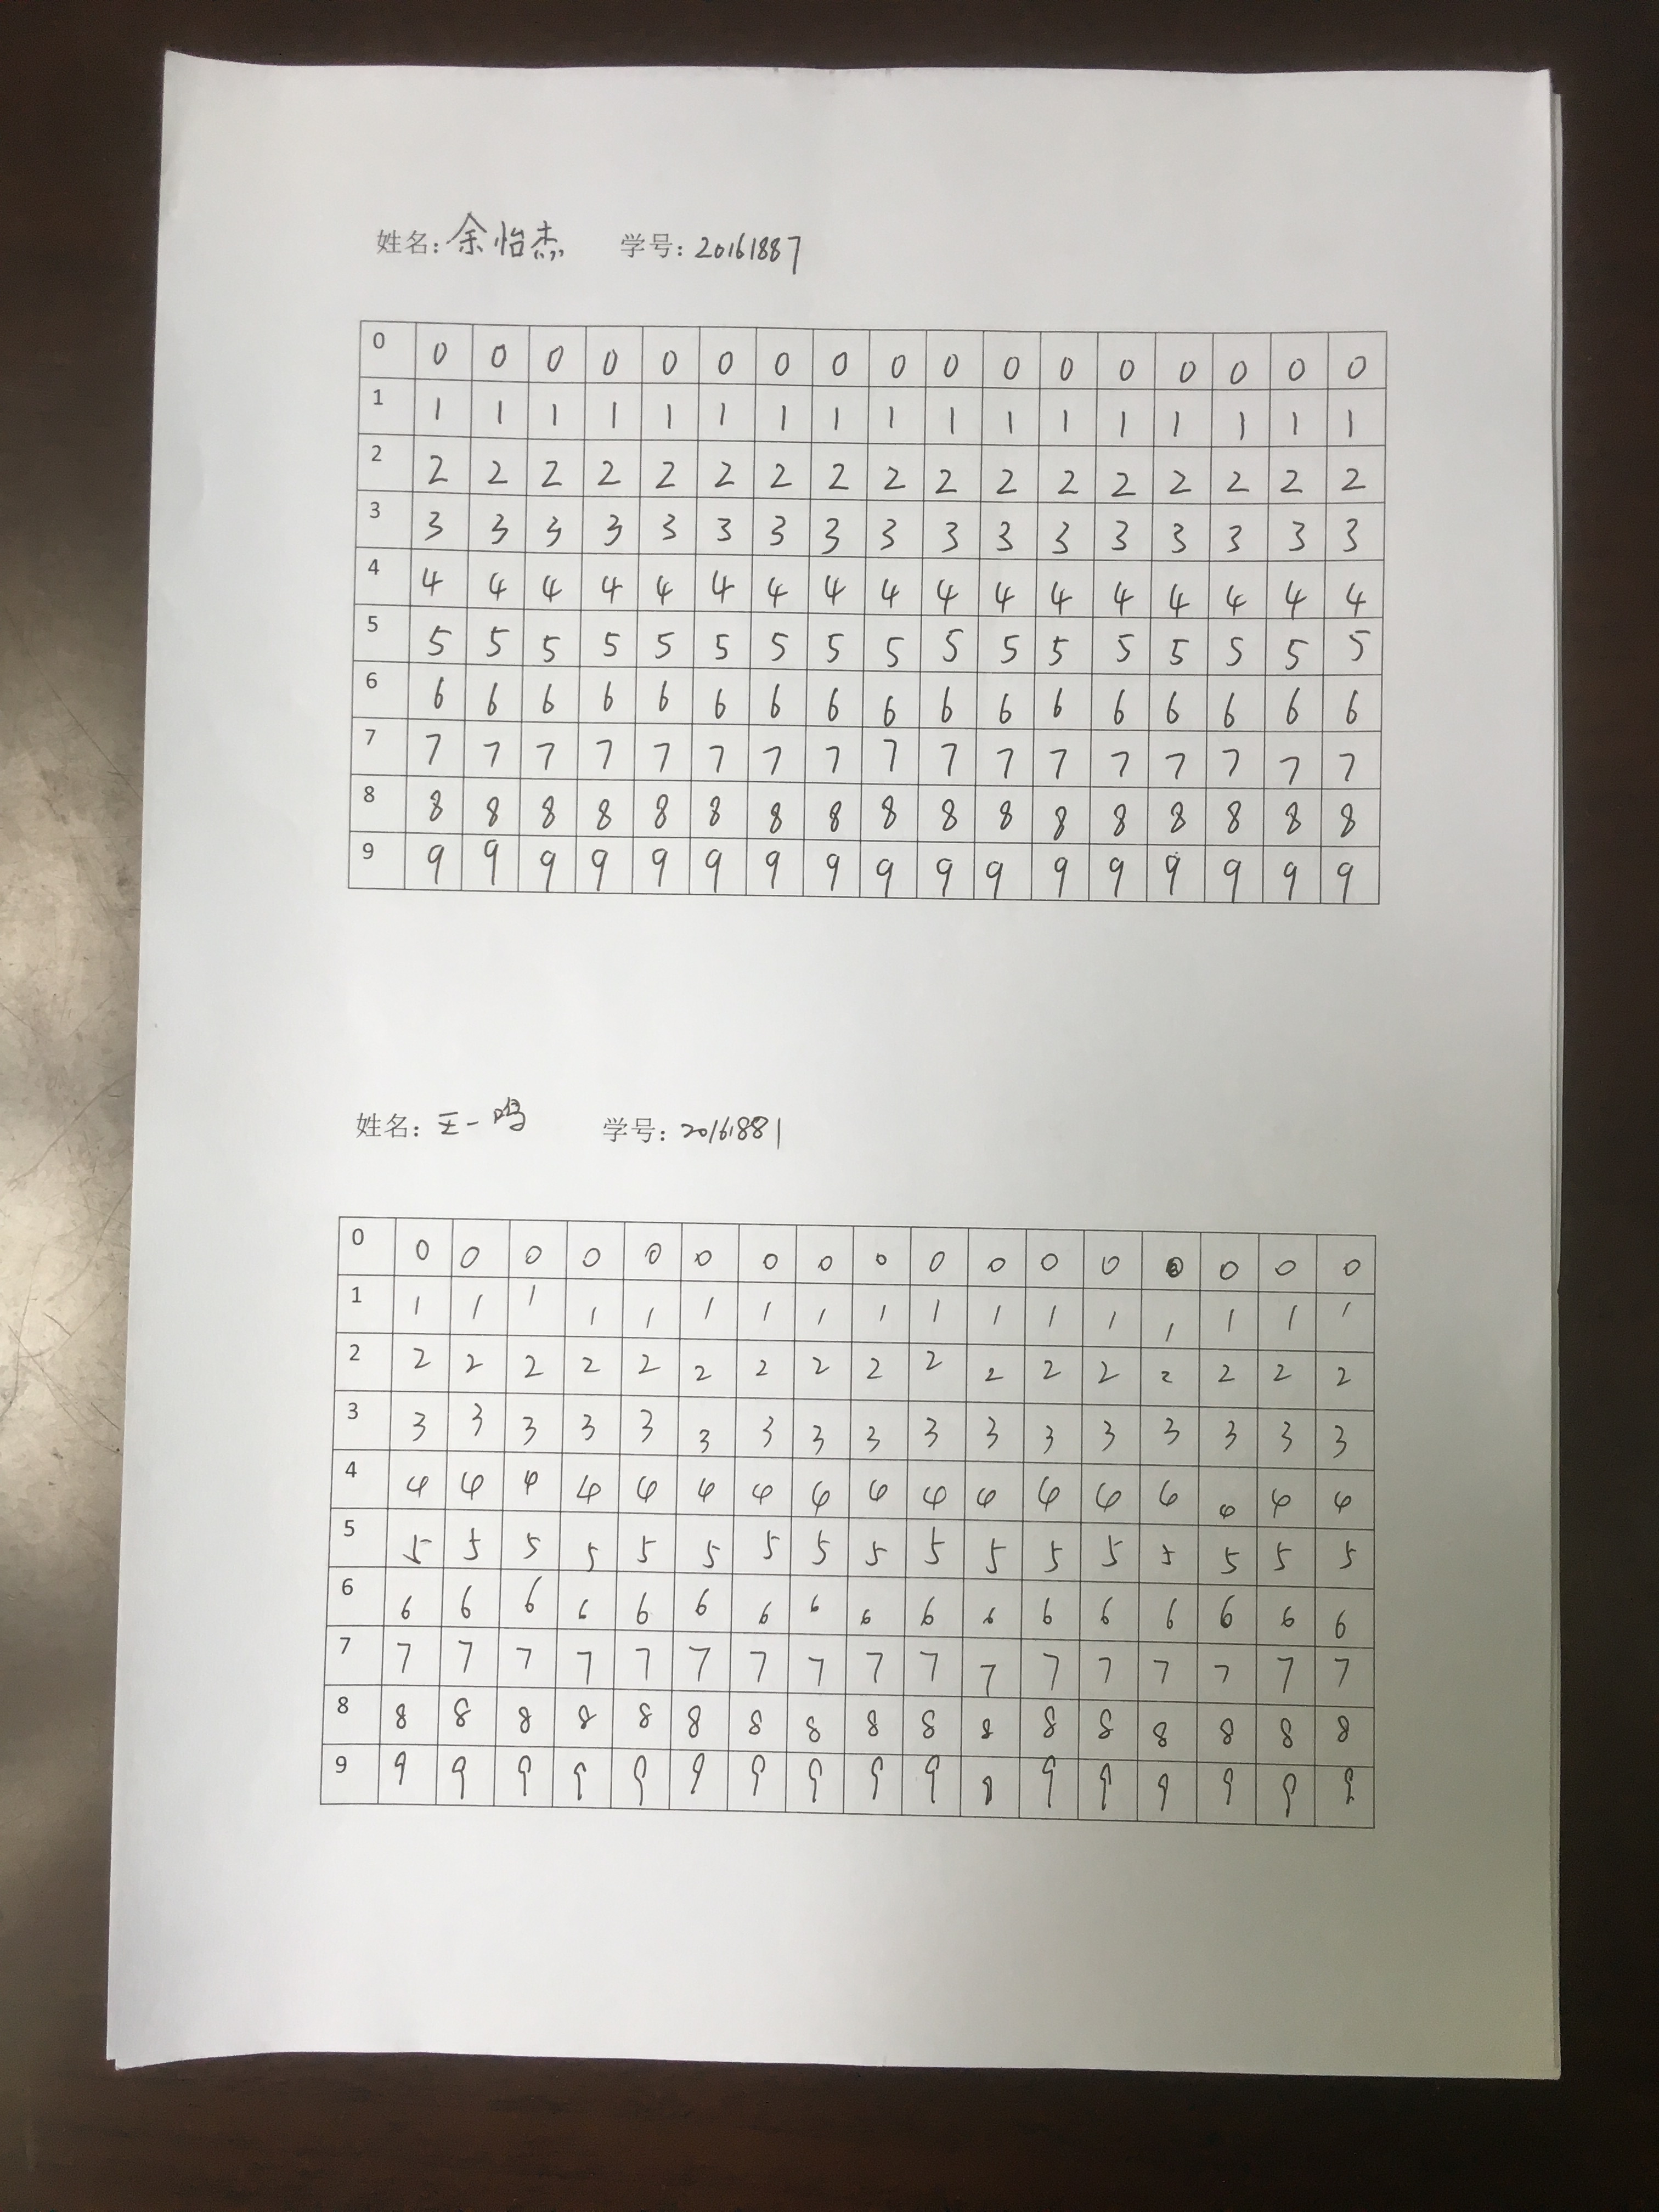 姓名：余怡杰 学号：20161887
0 0 0 0 0 0 0 0 0 0 0 0 0 0 0 0 0 0
1 1 1 1 1 1 1 1 1 1 1 1 1 1 1 1 1 1
2 2 2 2 2 2 2 2 2 2 2 2 2 2 2 2 2 2
3 3 3 3 3 3 3 3 3 3 3 3 3 3 3 3 3 3
4 4 4 4 4 4 4 4 4 4 4 4 4 4 4 4 4 4
5 5 5 5 5 5 5 5 5 5 5 5 5 5 5 5 5 5
6 6 6 6 6 6 6 6 6 6 6 6 6 6 6 6 6 6
7 7 7 7 7 7 7 7 7 7 7 7 7 7 7 7 7 7
8 8 8 8 8 8 8 8 8 8 8 8 8 8 8 8 8 8
9 9 9 9 9 9 9 9 9 9 9 9 9 9 9 9 9 9
姓名：王一鸣 学号：20161881
0 0 0 0 0 0 0 0 0 0 0 0 0 0 0 0 0 0
1 1 1 1 1 1 1 1 1 1 1 1 1 1 1 1 1 1
2 2 2 2 2 2 2 2 2 2 2 2 2 2 2 2 2 2
3 3 3 3 3 3 3 3 3 3 3 3 3 3 3 3 3 3
4 4 4 4 4 4 4 4 4 4 4 4 4 4 4 4 4 4
5 5 5 5 5 5 5 5 5 5 5 5 5 5 5 5 5 5
6 6 6 6 6 6 6 6 6 6 6 6 6 6 6 6 6 6
7 7 7 7 7 7 7 7 7 7 7 7 7 7 7 7 7 7
8 8 8 8 8 8 8 8 8 8 8 8 8 8 8 8 8 8
9 9 9 9 9 9 9 9 9 9 9 9 9 9 9 9 9 9